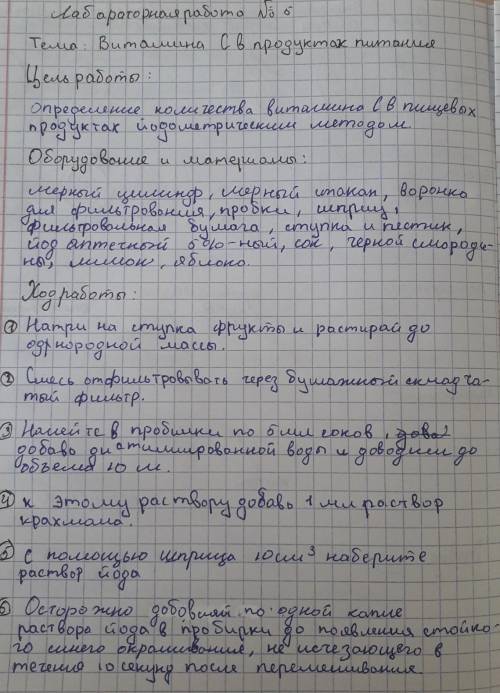 Лабараторная работа № 5
Тема: Витамина С в продуктах питания
Цель работы:
Определение количества витамина С в пищевых
продуктах йодометрическим методом.
Оборудование и материалы:
мерный цилиндр, мерный стакан, воронка
для фильтрования, пробки, шприц,
фильтровальная бумага, ступка и пестик,
йод аптечный 5%-ный, сок, черной смороди-
ны, лимон, яблоко.
Ход работы:
1 Натри на ступка фрукты и растирай до
однородной массы.
2 Смесь отфильтровывать через бумажный складча-
тый фильтр.
3 Налейте в пробирки по 5 мл соков,
добавь дистиллированной воды и доводим до
объема 10 м.
4 к этому раствору добавь 1 мл раствор
крахмала.
5 с помощью шприца 10 см³ наберите
раствор йода
6 Осторожно добовляй по одной капле
раствора йода в пробирки до появления стойко-
го синего окрашивание, не исчезающего в
течения 10 секунд после перемешивания.